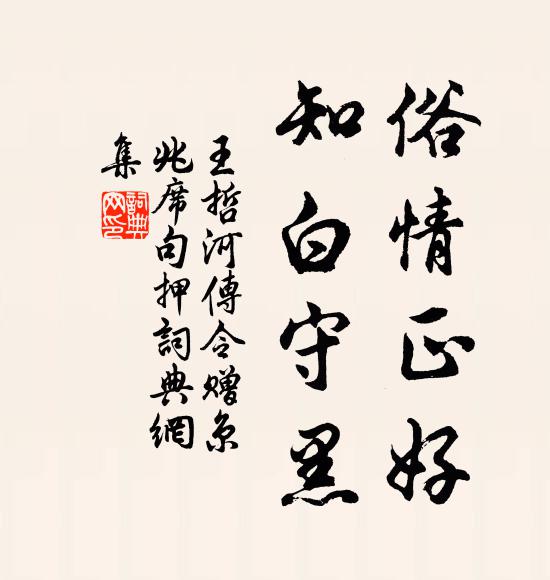 俗情正好
知白守黑
王哲河傳令贈京
兆席句押詞典網
集
詞典網印